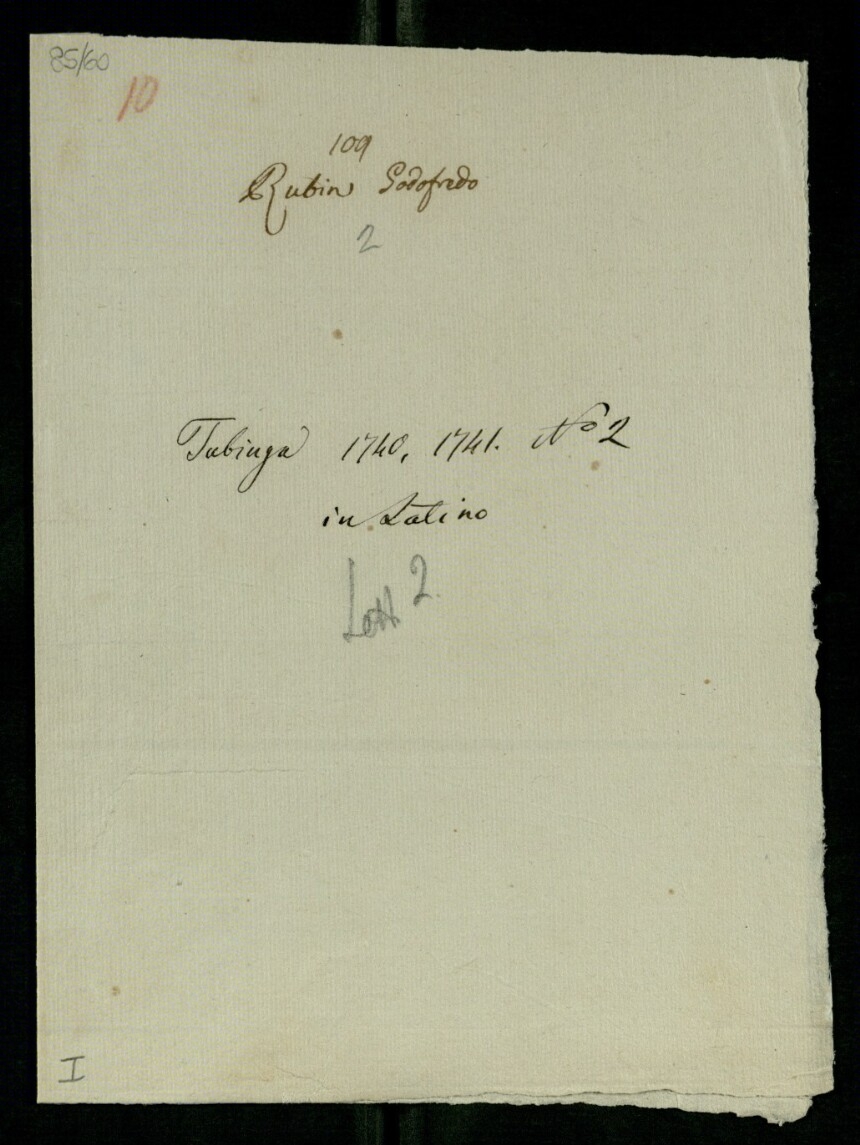 85/60
10
109
Rubin Godofredo
2
Tubinga 1740, 1741. No 2
in Latino
Lett 2.
I